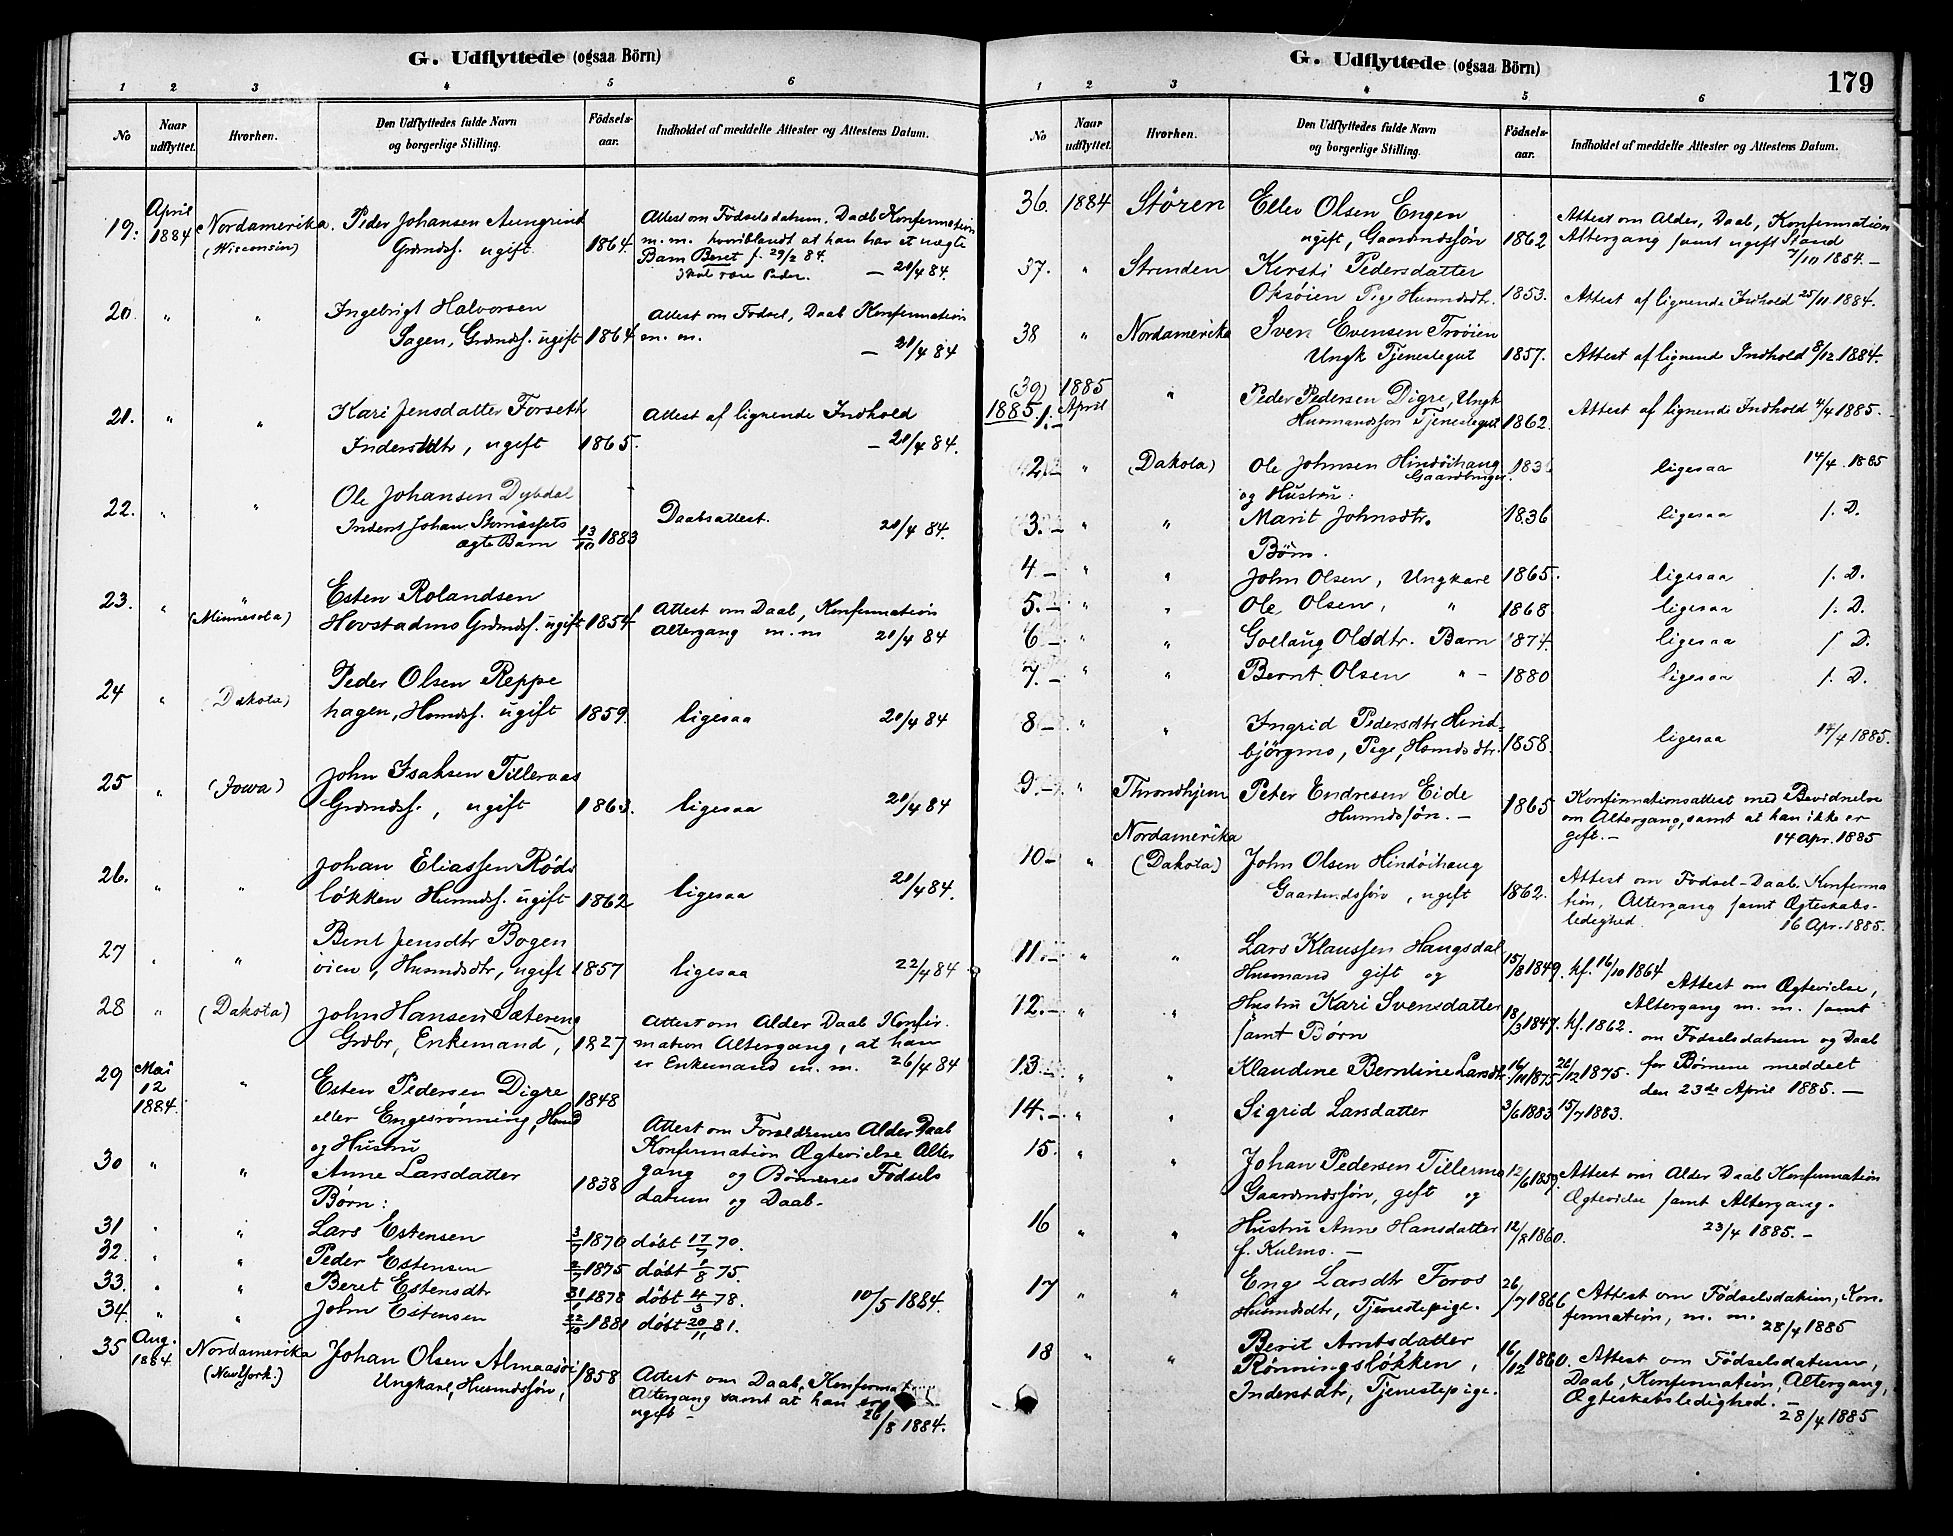 G. Udflyttede (ogsaa Börn)
1 2 3 4 5 6
No
Naar udflyttet.
Hvorhen.
Den Udflyttedes fulde Navn og borgerlige Stilling.
Födsels-aar.
Indholdet af meddelte Attester og Attestens Datum.
19. April 1884 Nordamerika (Wisconsin) Peder Johansen Aungrind 1864 Attest om Fødselsdatum, Daab Konfirmation
Grdmds. ugift. m. m. hvoriblandt at han har et uægte
Barn Beret f. 29/2 84.
skal være Peder. — 20/4 84.
20. " " Ingebrigt Halvorsen Attest om Fødsel, Daab Konfirmation
Sagen, Grdmds. ugift 1864 m. m. — 20/4 84
21. " " Kari Jensdatter Forseth Attest af lignende Indhold
Inderstdtr, ugift 1865. — 20/4 84.
22. " " Ole Johansen Dybdal
Inderst Johan Daabsattest. 20/4 84.
ægte Barn 13/10 1883
23. " " (Minnesota) Esten Rolandsen
Hovstadmo Grdmds. ugift 1854 Attest om Daab, Konfirmation
Altergang m. m 20/4 84
24 " (Dakota) Peder Olsen Reppe
hagen, Hsmds. ugift 1859. ligesaa 20/4 84
25 " (Jowa) John Isaksen Tilleraas
Grdmds., ugift 1863. ligesaa 20/4 84
26. " " Johan Eliassen Røds
løkken Husmds. ugift 1862 ligesaa 20/4 84.
27 " " Berit Jensdtr Bogen
øien, Husmdsdtr, ugift 1857 ligesaa 22/4 84
28 " (Dakota) John Hansen Sæteren Attest om Alder Daab Konfir-
Grdbr, Enkemand, 1827 mation Altergang, at han
er Enkemand m. m. 26/4 84
29 Mai 12 1884. " Esten Pedersen Digre 1848
eller Engesrønning, Hsmd Attest om Forældrenes Alder Daab
og Hustru Konfirmation Ægtevielse Alter
30 " " Anne Larsdatter 1838 gang og Børnenes Fødsels
Børn: datum og Daab-
31 " " Lars Estensen 3/7 1870 døbt 17/7 70.
32. " " Peder Estensen 2/7 1875 døbt 1/8 75.
33. " " Beret Estensdtr 31/1 1878 døbt 4/3 78.
34. " " John Estensen 22/10 1881 døbt 20/11 81. 10/5 1884.
35 Aug. 1884. Nordamerika (NewYork.) Johan Olsen Almaasøi 1858 Attest om Daab, Konfirmat
Ungkarl, Husmdssøn, Altergang samt at han er
ugift — 26/8 1884.
G. Udflyttede (ogsaa Börn)
179
1 2 3 4 5 6
No
Naar udflyttet.
Hvorhen.
Den Udflyttedes fulde Navn og borgerlige Stilling.
Födsels-aar.
Indholdet af meddelte Attester og Attestens Datum.
36. 1884 Støren Ellev Olsen Engen Attest om Alder, Daab, Konfirmation
ugift, Gaardmdssøn 1862 Altergang samt ugift Stand
7/10 1884.—
37. " Strinden Kirsti Pedersdatter
Oksøien Pige Husmdsdtr. 1853. Attest af lignende Indhold 25/11 1884.
38 " Nordamerika Sven Evensen Trøien
Ungk Tjenestegut 1857. Attest af lignende Indhold 8/12 1884.
(39) 1885 " Peder Pedersen Digre, Ungk
1885. 1. April Husmandssøn Tjenestegut 1862. Attest af lignende Indhold 4/4 1885.
2.— " (Dakota) Ole Johnsen Hindøihaug 1836 ligesaa 14/4 1885
Gaardbruger.
og Hustru:
3.— " " Marit Johnsdtr. 1836 ligesaa s. D.
Børn.
4 — " " John Olsen, Ungkarl 1865. ligesaa s. D.
5.— " " Ole Olsen, " 1868 ligesaa s. D.
6 — " " Gollaug Olsdtr. Barn 1874. ligesaa s D.
7.— " " Bernt Olsen " — 1880 ligesaa s. D.
8— " " Ingrid Pedersdtr Hind-
bjørgmo, Pige, Hsmdsdtr. 1858. ligesaa 14/4 1885.
9.— " Throndhjem Peter Endresen Eide 1865 Konfirmationsattest med Bevidnelse
Husmdssøn.— om Altergang, samt at han ikke er
gift.— 14 Apr. 1885
Nordamerika
10— " (Dakota) John Olsen Hindøihaug Attest om Fødsel-Daab, Konfirma
Gaardmdssøn, ugift 1862. tion, Altergang samt Ægteskabs-
ledighed. 16 Apr. 1885.
11.— " " Lars Klaussen Haugsdal
Husmand gift og 15/8 1849. kf. 16/10 1864
Attest om Ægtevielse,
12.— " " Hustru Kari Svensdatter Altergang m. m. samt
samt Børn 18/3 1847. kf. 1862. om Fødselsdatum og Daab
13.— " " Klaudine Berntine Larsdtr 16/11 1875 26/12 1875. for Børnene meddeet
den 23de April 1885.—
14.— " " Sigrid Larsdatter 3/6 1883 15/7 1883.
15. " " Johan Pedersen Tillermo 12/6 1859. Attest om Alder Daab Konfirmation
Gaardmdssøn, gift og Ægtevielse samt Altergang.
16 " " Hustru Anne Hansdatter 12/8 1860. 23/4 1885.—
f. Kulmo.—
17 " " Eng. Larsdtr Foros 26/7 1866 Attest om Fødselsdatum, Kon-
Husmdsdtr, Tjenestepige. firmation, m. m. 28/4 1885
18 " " Berit Arntsdatter
Rønningsløkken, 16/12 1860. Attest om Fødselsdatum,
Inderstdtr, Tjenestepige. Daab, Konfirmation, Altergang,
Ægteskabsledighed.—
28/4 1885